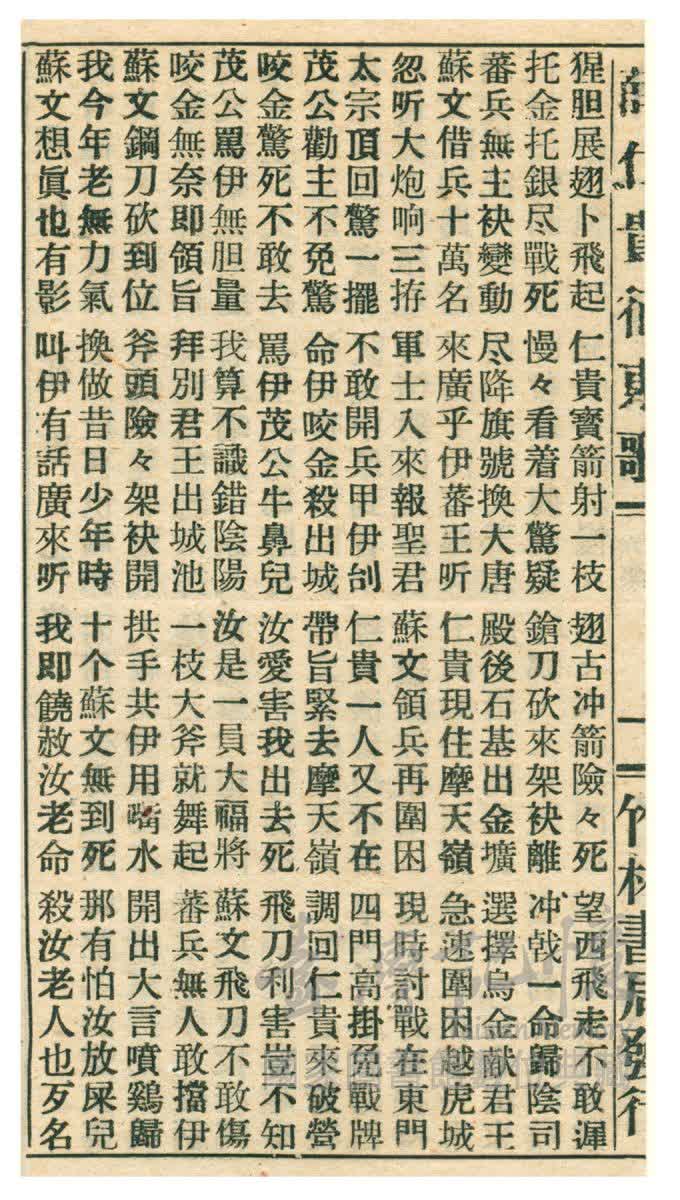 薛仁貴征東歌 一 竹林書局發行
猩胆展翅卜飛起 仁貴寶箭射一枝 翅古冲箭險々死 望西飛走不敢渥
托金托銀尽戰死 慢々看着大驚疑 鎗刀砍來架袂離 冲戟一命歸陰司
蕃兵無主袂變動 尽降旗號換大唐 殿後石基出金壙 選擇烏金献君王
蘇文借兵十萬名 來廣乎伊蕃王听 仁貴現住摩天嶺 急速圍困越虎城
忽听大炮响三拵 軍士入來報聖君 蘇文領兵再圍困 現時討戰在東門
太宗頂回驚一擺 不敢開兵甲伊刣 仁貴一人又不在 四門高掛免戰牌
茂公勸主不免驚 命伊咬金殺出城 帶旨緊去摩天嶺 調回仁貴來破營
咬金驚死不敢去 罵伊茂公牛鼻兒 汝愛害我出去死 飛刀利害豈不知
茂公罵伊無胆量 我算不識錯陰陽 汝是一員大福將 蘇文飛刀不敢傷
咬金無奈即領旨 拜別君王出城池 一枝大斧就舞起 蕃兵無人敢擋伊
蘇文鋼刀砍到位 斧頭險々架袂開 拱手共伊用嘴水 開出大言噴鷄歸
我今年老無力氣 換做昔日少年時 十个蘇文無到死 那有怕汝放屎兒
蘇文想眞也有影 叫伊有話廣來听 我即饒赦汝老命 殺汝老人也歹名